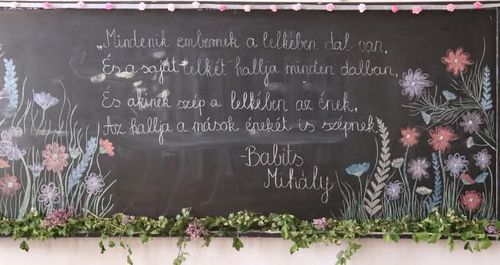 „Mindenik embernek a lelkében dal van,
És a saját lelkét hallja minden dalban,
És akinek szép a lelkében az ének,
Az hallja a mások énekét is szépnek."
-Babits
Mihály